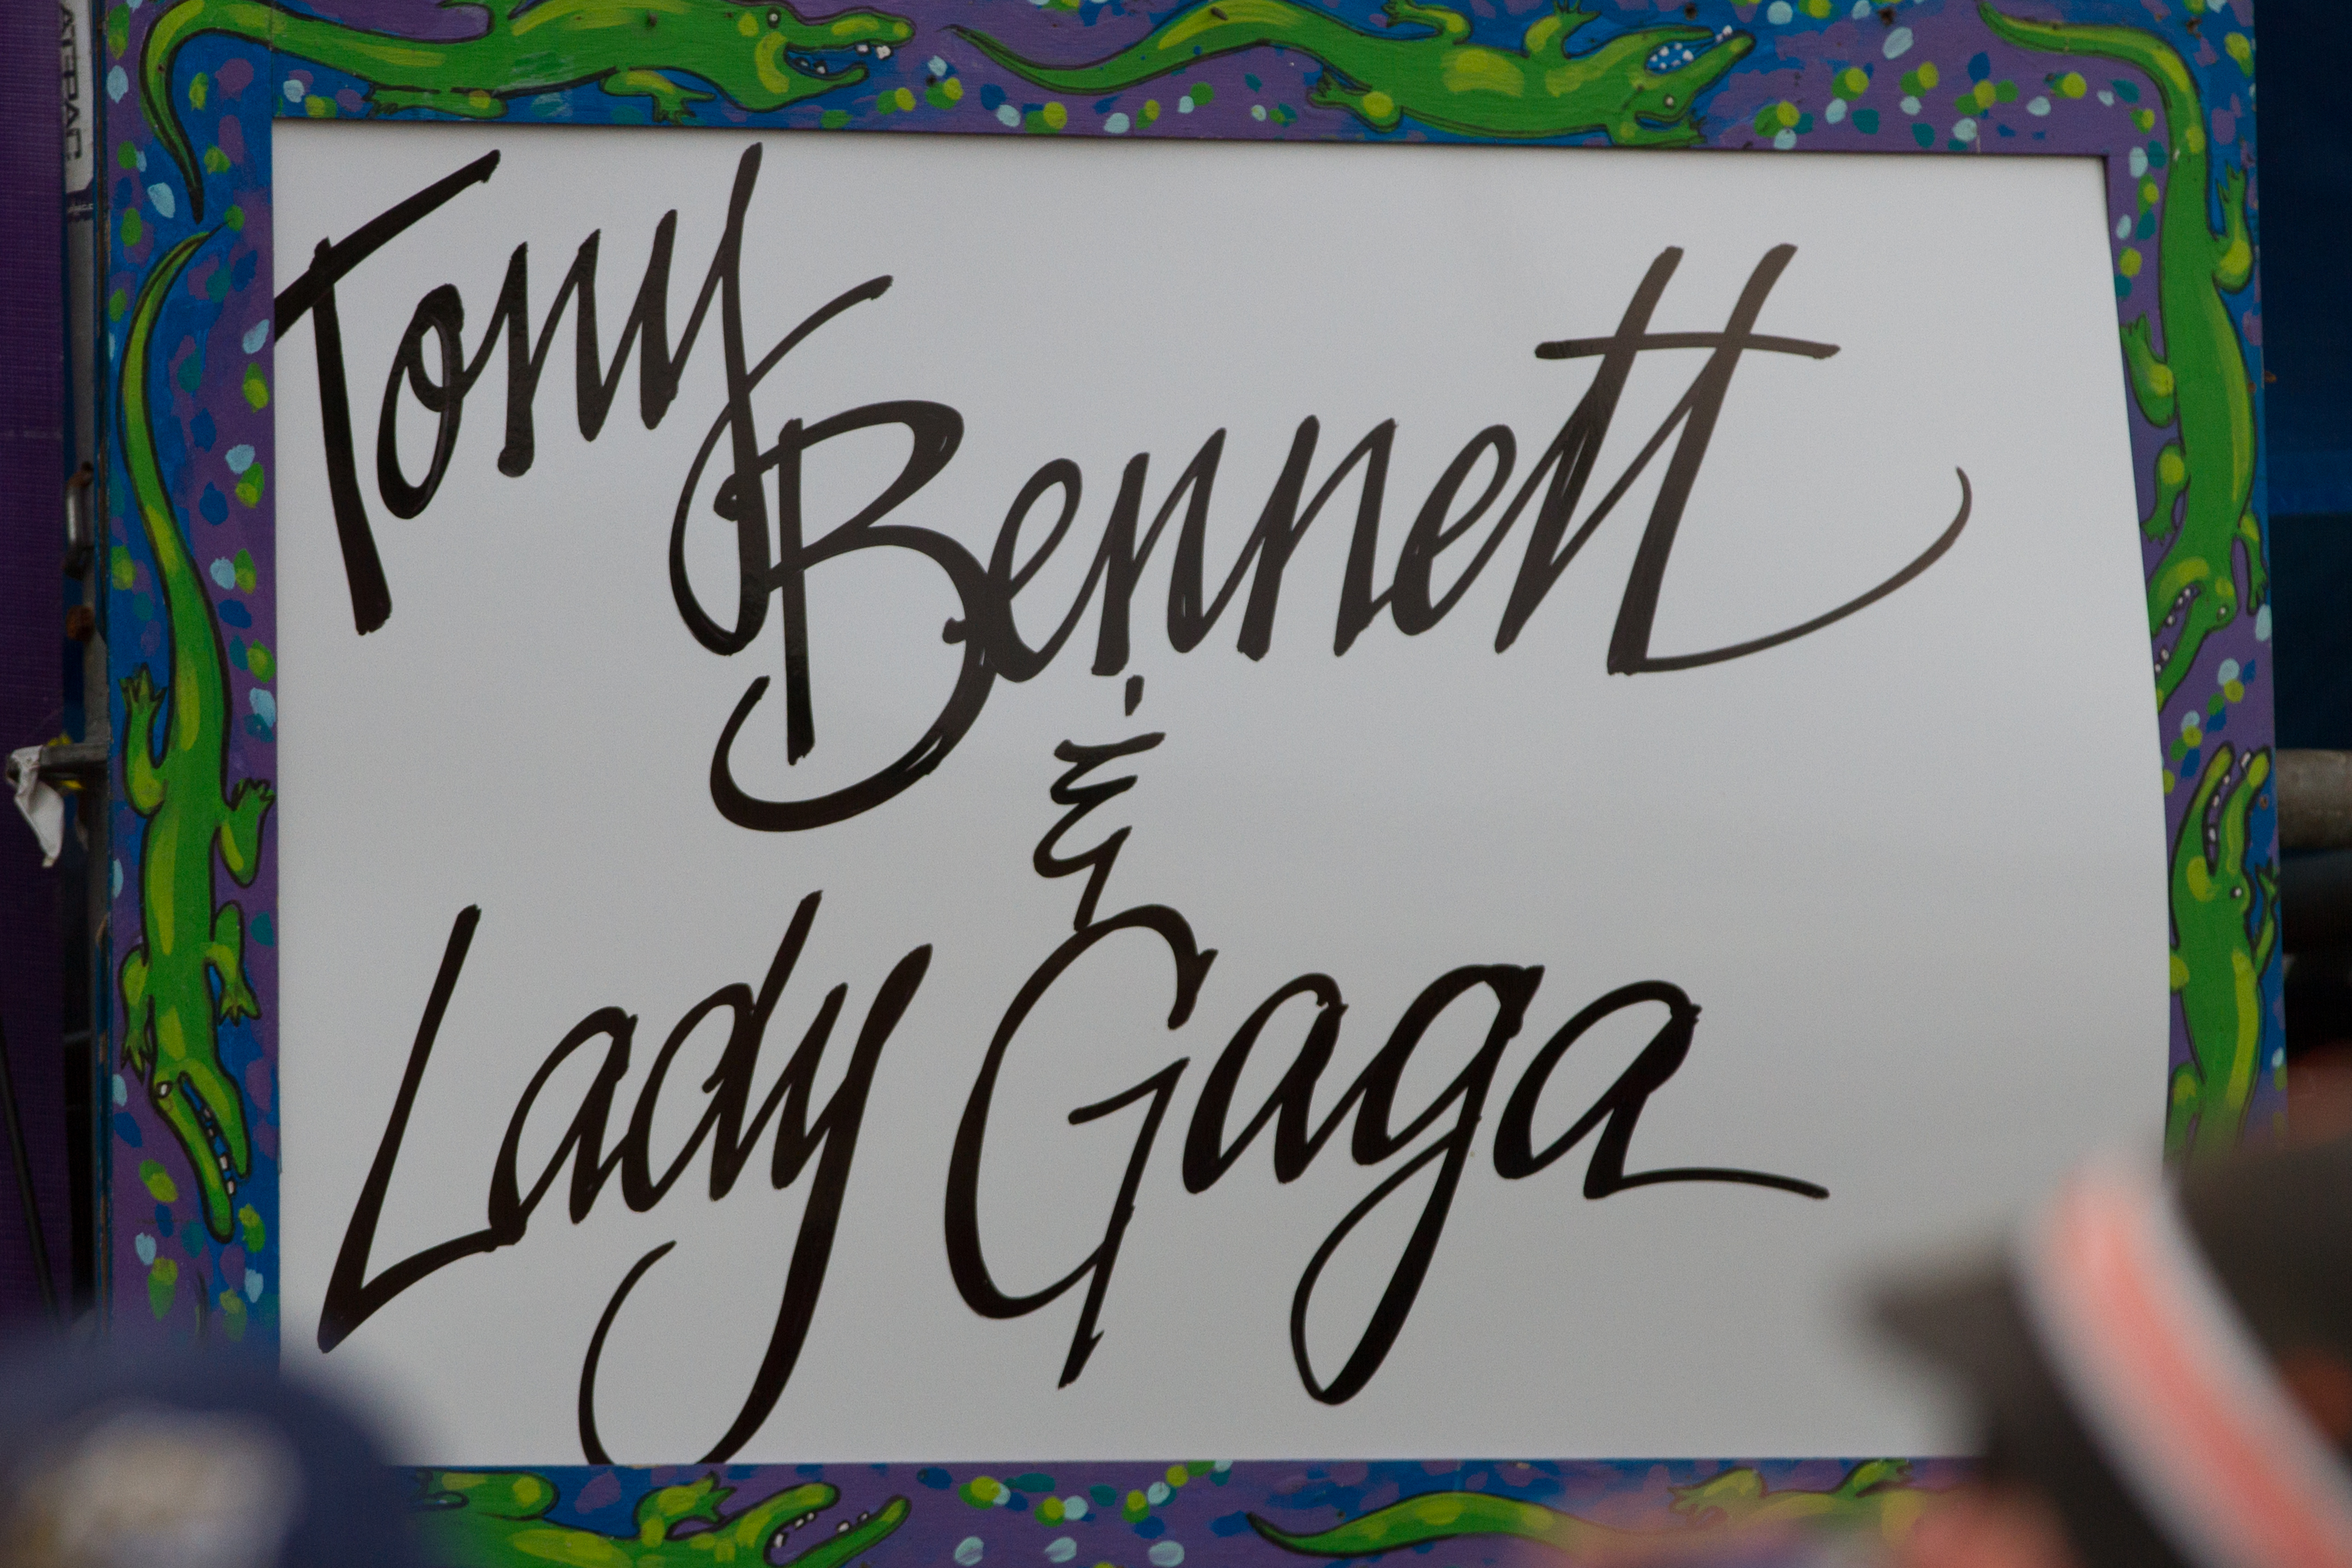 Tony
Bennett
&
Lady Gaga